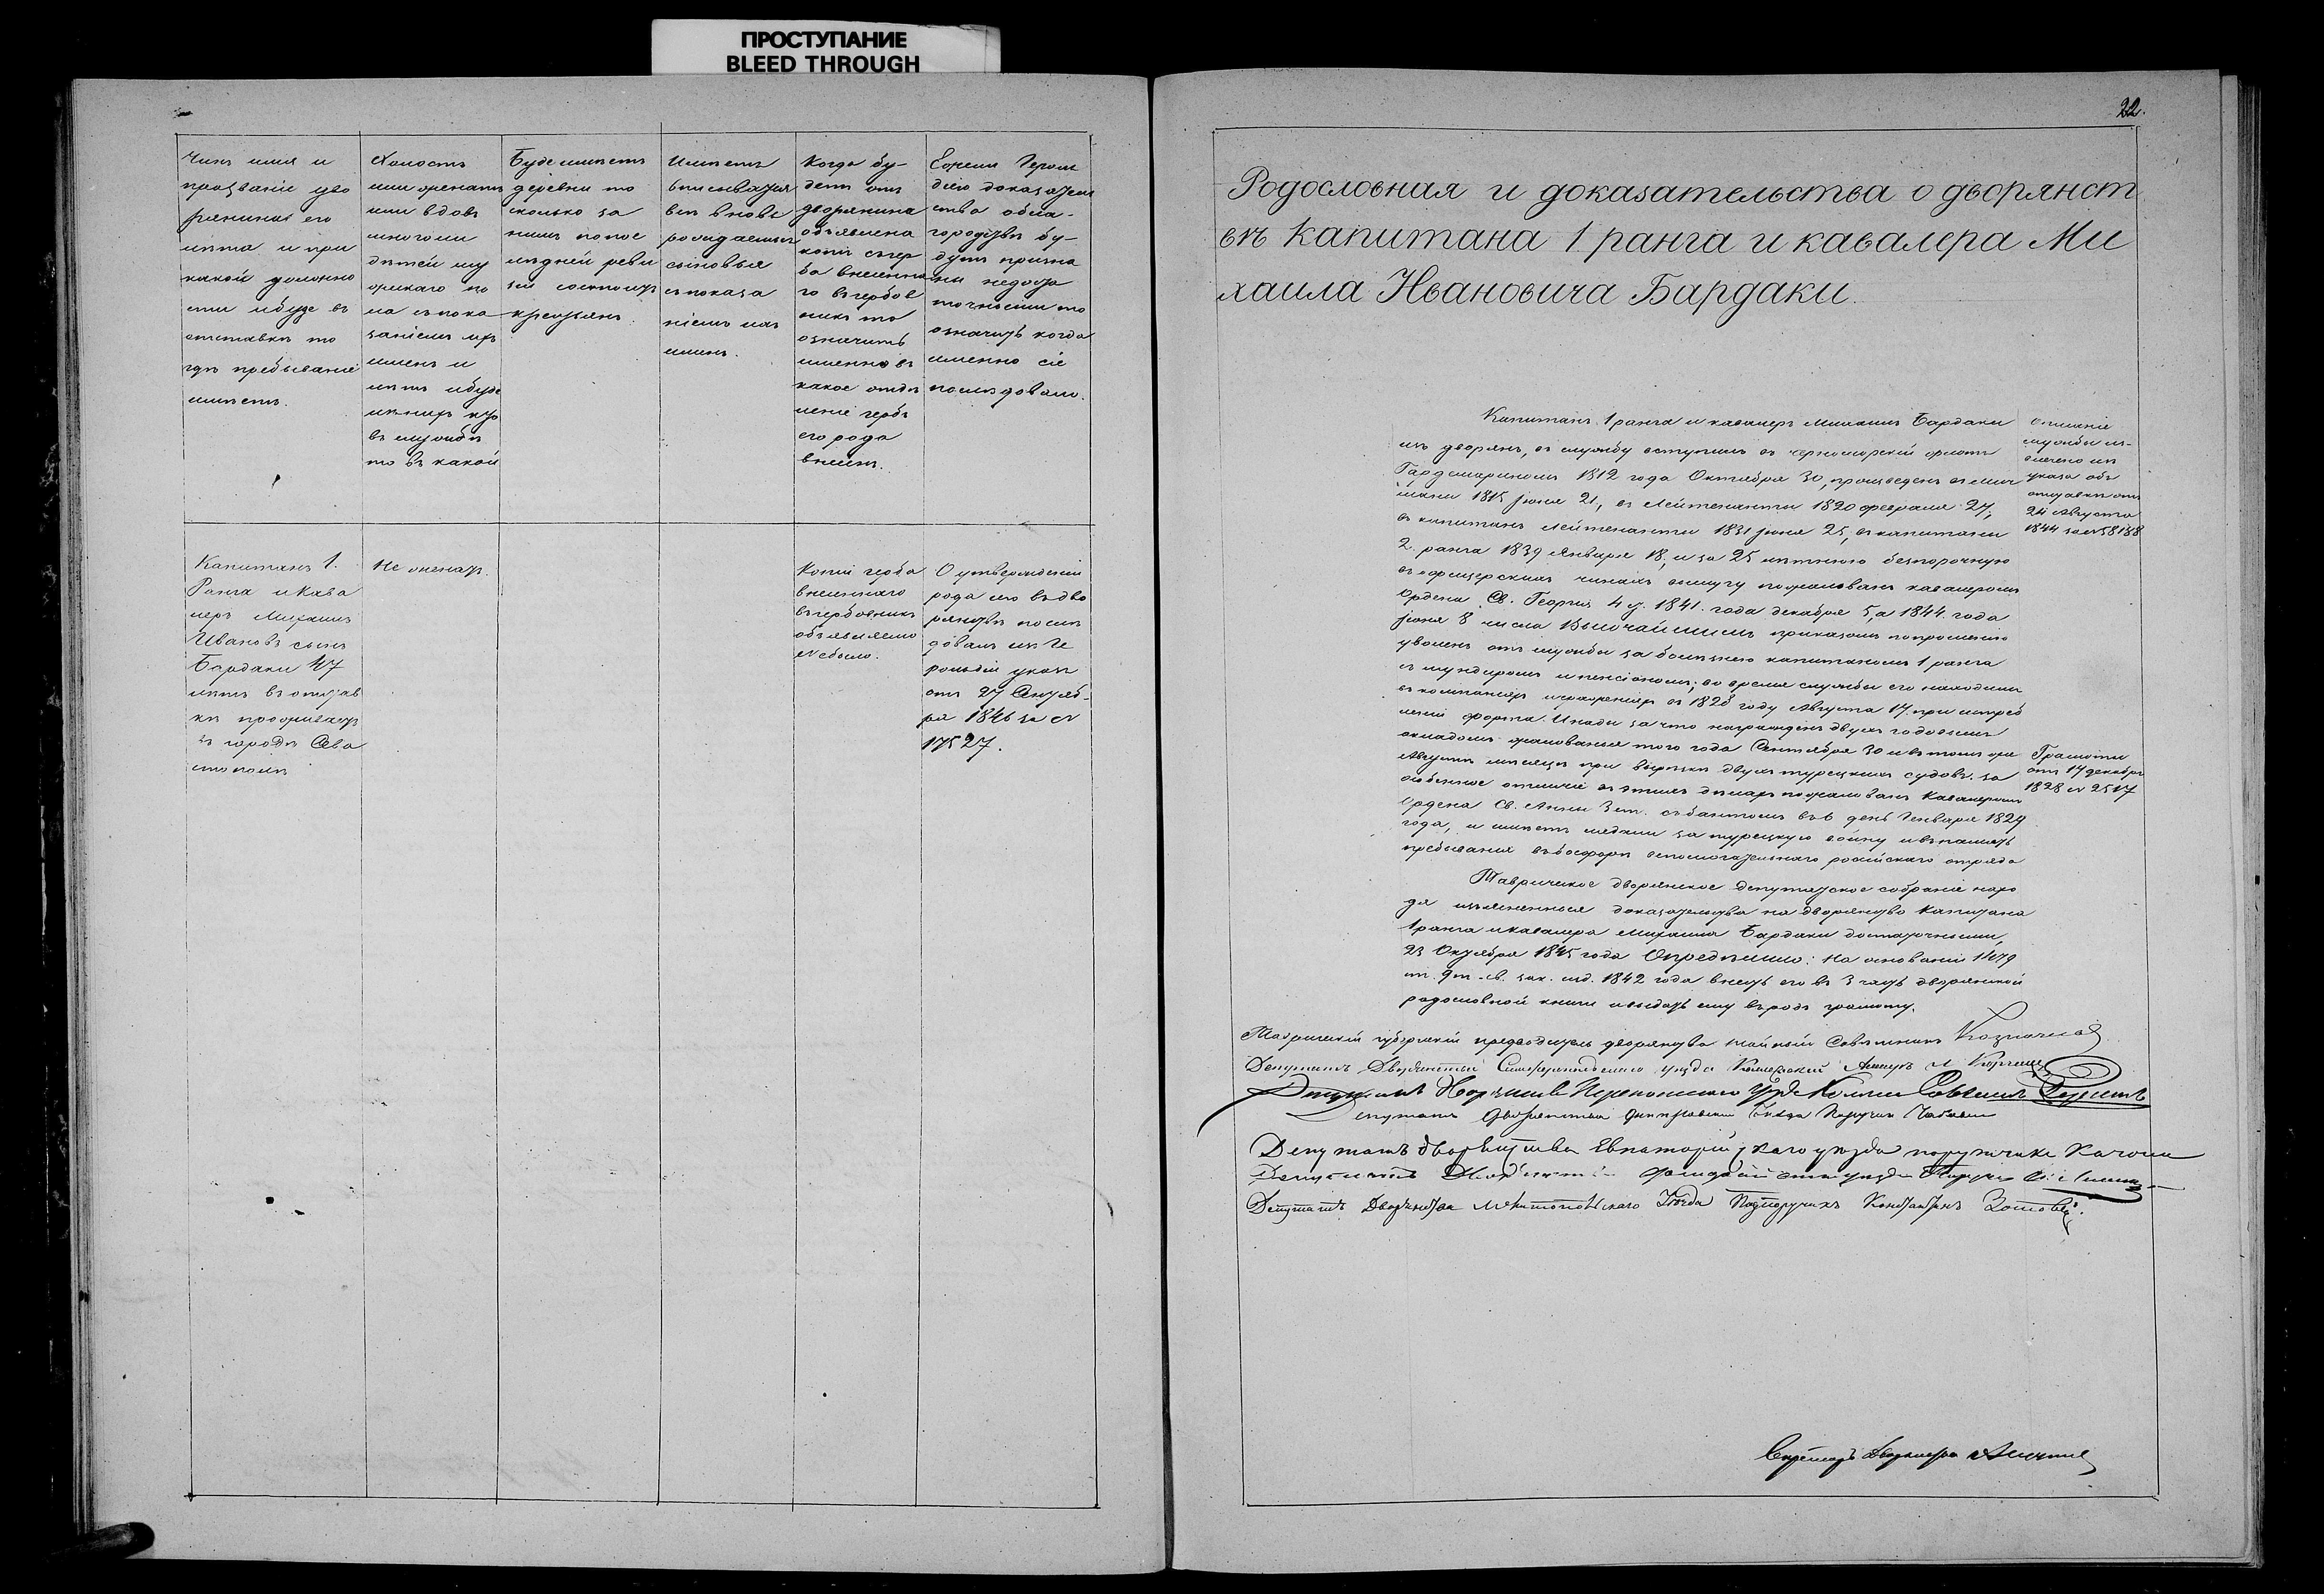 ПРОСТУПАНИЕ
BLEED THROUGH
Чинъ имя и
прозваніе дво
рянина его
лѣта и при
какой должно
сти ибуде въ
отставкѣ то
гдѣ пребываніе
имѣетъ.
Холостъ
или женатъ
или вдовъ
многоли
дѣтей му
жескаго по
ла съпока
заніемъ ихъ
именъ и
лѣтъ ибуде
изнихъ кто
въ службѣ
то въ какой
Буде имѣетъ
деревни то
сколько за
нимъ попос
лѣдней реви
зіи состоитъ
крестьянъ.
Имѣетъ
вписыватся
всѣ вновь
рождаемые
сыновья
съпоказа
ніемъ ихъ
именъ.
Когда бу-
детъ отъ
дворянина
объявлена
копія съгер
ба внесенна
го въгербов
никъ то
означить
именно въ
какое отдѣ
леніе гербъ
его рода
внесенъ.
Ежели Героль
діею доказатель
ства обла-
городствѣ бу-
дутъ призна
ны недоста
точными то
означить когда
именно сіе
послѣдовало.
Капитанъ 1.
Ранга иКава
леръ Михаилъ
Ивановъ сынъ
Бардаки 47
лѣтъ въ отстав
кѣ проживаетъ
въ городѣ Сева
стополѣ
Не женатъ.
Копіи герба
внесеннаго
въгербовникъ
объявляемо
небыло.
О утвержденіи
рода его въдво
рянствѣ послѣ
довалъ изъ Ге
рольдіи указъ
отъ 27 Сентяб-
ря 1846 за №
17527.
22.
Родословная и доказательства о дворянст
вѣ капитана 1 ранга и кавалера Ми
хаила Ивановича Бардаки.
Капитанъ 1 ранга и кавалеръ Михаилъ Бардаки
изъ дворянъ, въ службу вступилъ въ черноморскій флотъ
Гардемариномъ 1812 года Октября 30, произведенъ въ мич
маны 1815 Іюля 21, въ Лейтенанты 1820 февраля 27,
въ капитанъ лейтенанты 1831 Іюня 25, въ капитаны
2 ранга 1839 Января 18, и за 25 лѣтнюю безпорочную
въ офицерскихъ чинахъ выслугу пожалованъ кавалеромъ
Ордена Св. Георгія 4 ст. 1841. года декабря 5, а 1844 года
Іюня 8 числа Высочайшимъ приказомъ попрошенію
уволенъ отъ службы за болѣзнею капитаномъ 1 ранга
съ мундиромъ и пенсіономъ; во время службы его находился
въ компаніяхъ исраженіяхъ въ 1828 году Августа 17. при истреб
леніи форта Инады за что награжденъ двухъ годовымъ
окладомъ жалованья того года Сентября 30 ивъ томъ же
Августѣ мѣсяцѣ при вырѣзкѣ двухъ турецкихъ судовъ. за
особенное отличіе въ этихъ дѣлахъ пожалованъ Кавалеромъ
Ордена Св. Анны 3 ст. събантомъ въ 6 день Генваря 1829
года, и имѣетъ медали за турецкую войну ивъпамять
пребыванія въбосфорѣ вспомогательнаго россійскаго отряда
Таврическое дворянское депутатское собраніе нахо
дя изъясненныя доказательства на дворянство Капитана
1 ранга икавалера Михаила Бардаки достаточными,
23 Октября 1845 года Опредѣлило: На основаніи 1479
ст. 9 т. св. зак. изд. 1842 года внесть его въ 3 часть дворянской
родословной книги ивыдать ему въродъ грамоту.
Описаніе
службы из-
влечено изъ
указа объ
отставкѣ отъ
24 Августа
1844
Грамоты
отъ 14 декабря
1828 № 2517
Таврическій губернскій предводитель дворянства тайный Совѣтникъ Казначеевъ
Депутатъ Дворянства Симферопольскаго уѣзда
Депутатъ Дворянства Перекопскаго
Депутатъ Дворянства Днѣпровскаго Уѣзда Поручикъ
Депутатъ дворянства Евпаторійскаго уѣзда поручикъ Качони
Депутатъ Дворянства
Депутатъ Дворянства Мелитопольскаго Уѣзда Подпоручикъ Константинъ Зотовъ.
Секретарь Дворянства